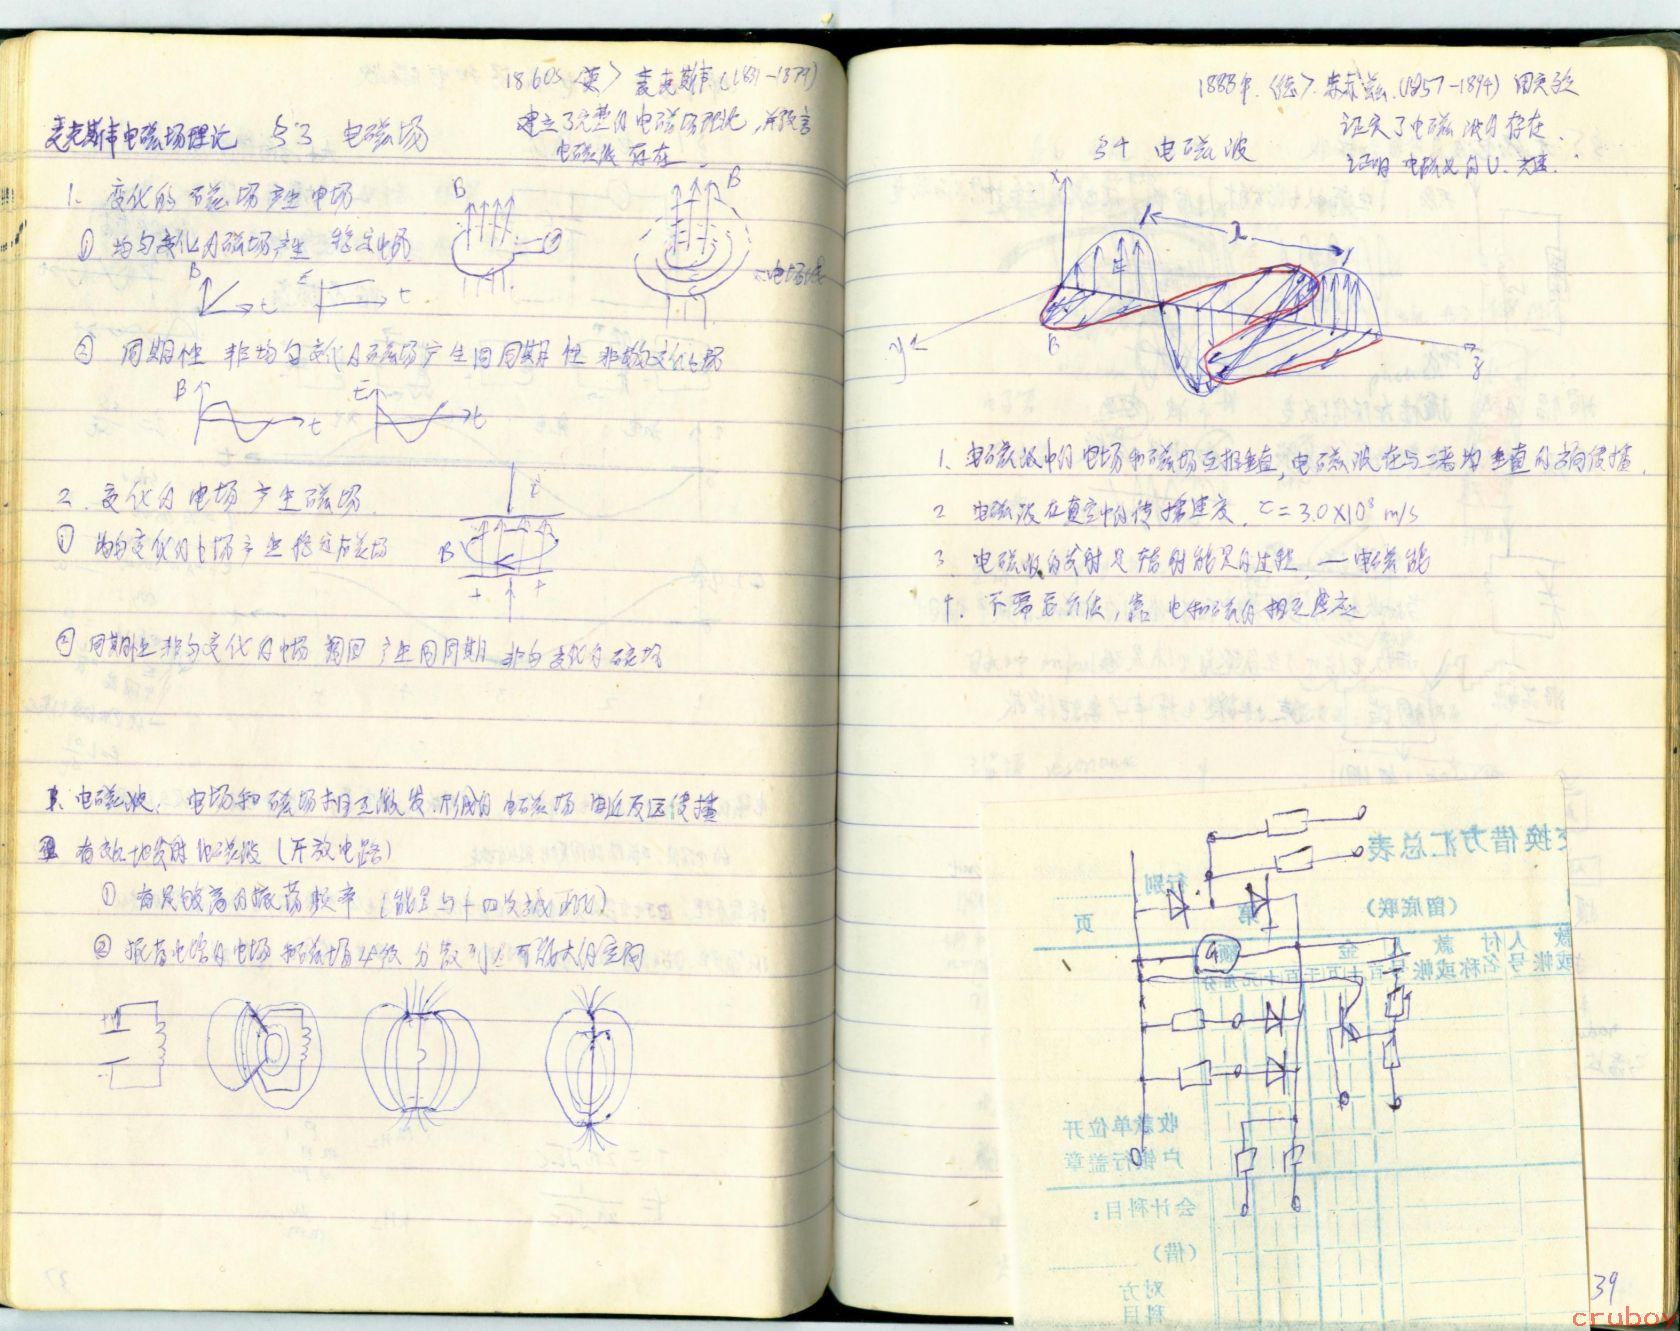 1860s <英> 麦克斯韦 (1831-1879)
建立了完整的电磁场理论,并预言
电磁波存在
麦克斯韦电磁场理论 §3 电磁场
1. 变化的磁场产生电场
① 均匀变化的磁场产生稳定电场
B
B
电场线
B t E t
② 周期性非均匀变化的磁场产生同周期性非均匀变化电场
B t E t
2. 变化的电场产生磁场
i
① 均匀变化的电场产生稳定的磁场
B
+ +
② 周期性非均匀变化的电场 产生同周期非均匀变化的磁场
电磁波: 电场和磁场相互激发形成的电磁场由近及远传播
有效地发射电磁波 (开放电路)
① 有足够高的振荡频率 (能量与f四次成正比)
② 振荡电路的电场和磁场 分散到尽可能大的空间
1888年 <德> 赫兹 (1857-1894) 用实验
证实了电磁波的存在.
证明电磁波的v.光速.
§4 电磁波
x
λ
E
y
B
z
1. 电磁波中的电场和磁场互相垂直,电磁波在与二者均垂直的方向传播.
2. 电磁波在真空中的传播速度. c=3.0×10⁸ m/s
3. 电磁波的发射是辐射能量的过程. —电磁能
4. 不需要介质,靠电和磁的相互感应
交换借方汇总表
行别
(留底联)
第
页
付款人
金额
名称或帐号
百十万千百十元角分
收款单位开
户银行盖章
会计科目:
(借)
对方
科目
39
cruboy